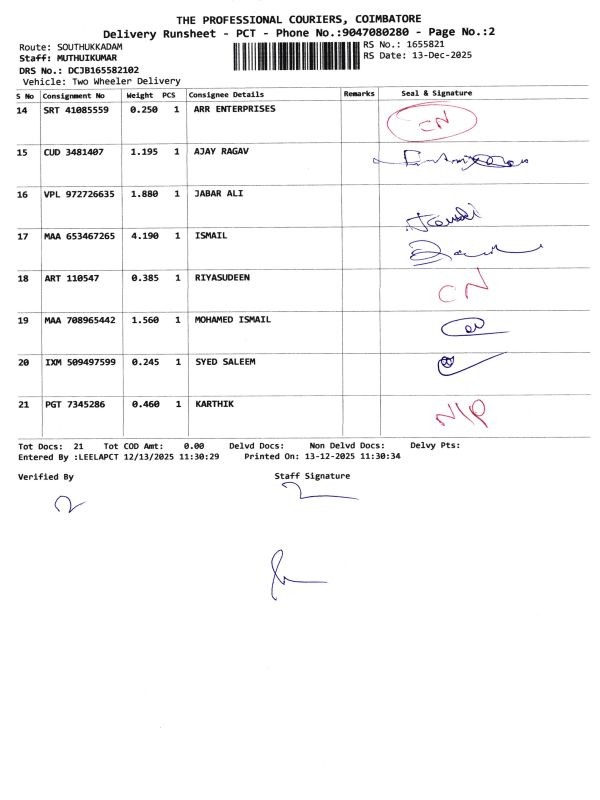 THE PROFESSIONAL COURIERS, COIMBATORE
Delivery Runsheet - PCT - Phone No.:9047080280 - Page No.:2
Route: SOUTHUKKADAM RS No.: 1655821
Staff: MUTHUIKUMAR RS Date: 13-Dec-2025
DRS No.: DCJB165582102
Vehicle: Two Wheeler Delivery
S No Consignment No Weight PCS Consignee Details Remarks Seal & Signature
14 SRT 41085559 0.250 1 ARR ENTERPRISES CN
15 CUD 3481407 1.195 1 AJAY RAGAV
16 VPL 972726635 1.880 1 JABAR ALI
17 MAA 653467265 4.190 1 ISMAIL
18 ART 110547 0.385 1 RIYASUDEEN CN
19 MAA 708965442 1.560 1 MOHAMED ISMAIL
20 IXM 509497599 0.245 1 SYED SALEEM
21 PGT 7345286 0.460 1 KARTHIK N/P
Tot Docs: 21 Tot COD Amt: 0.00 Delvd Docs: Non Delvd Docs: Delvy Pts:
Entered By :LEELAPCT 12/13/2025 11:30:29 Printed On: 13-12-2025 11:30:34
Verified By Staff Signature